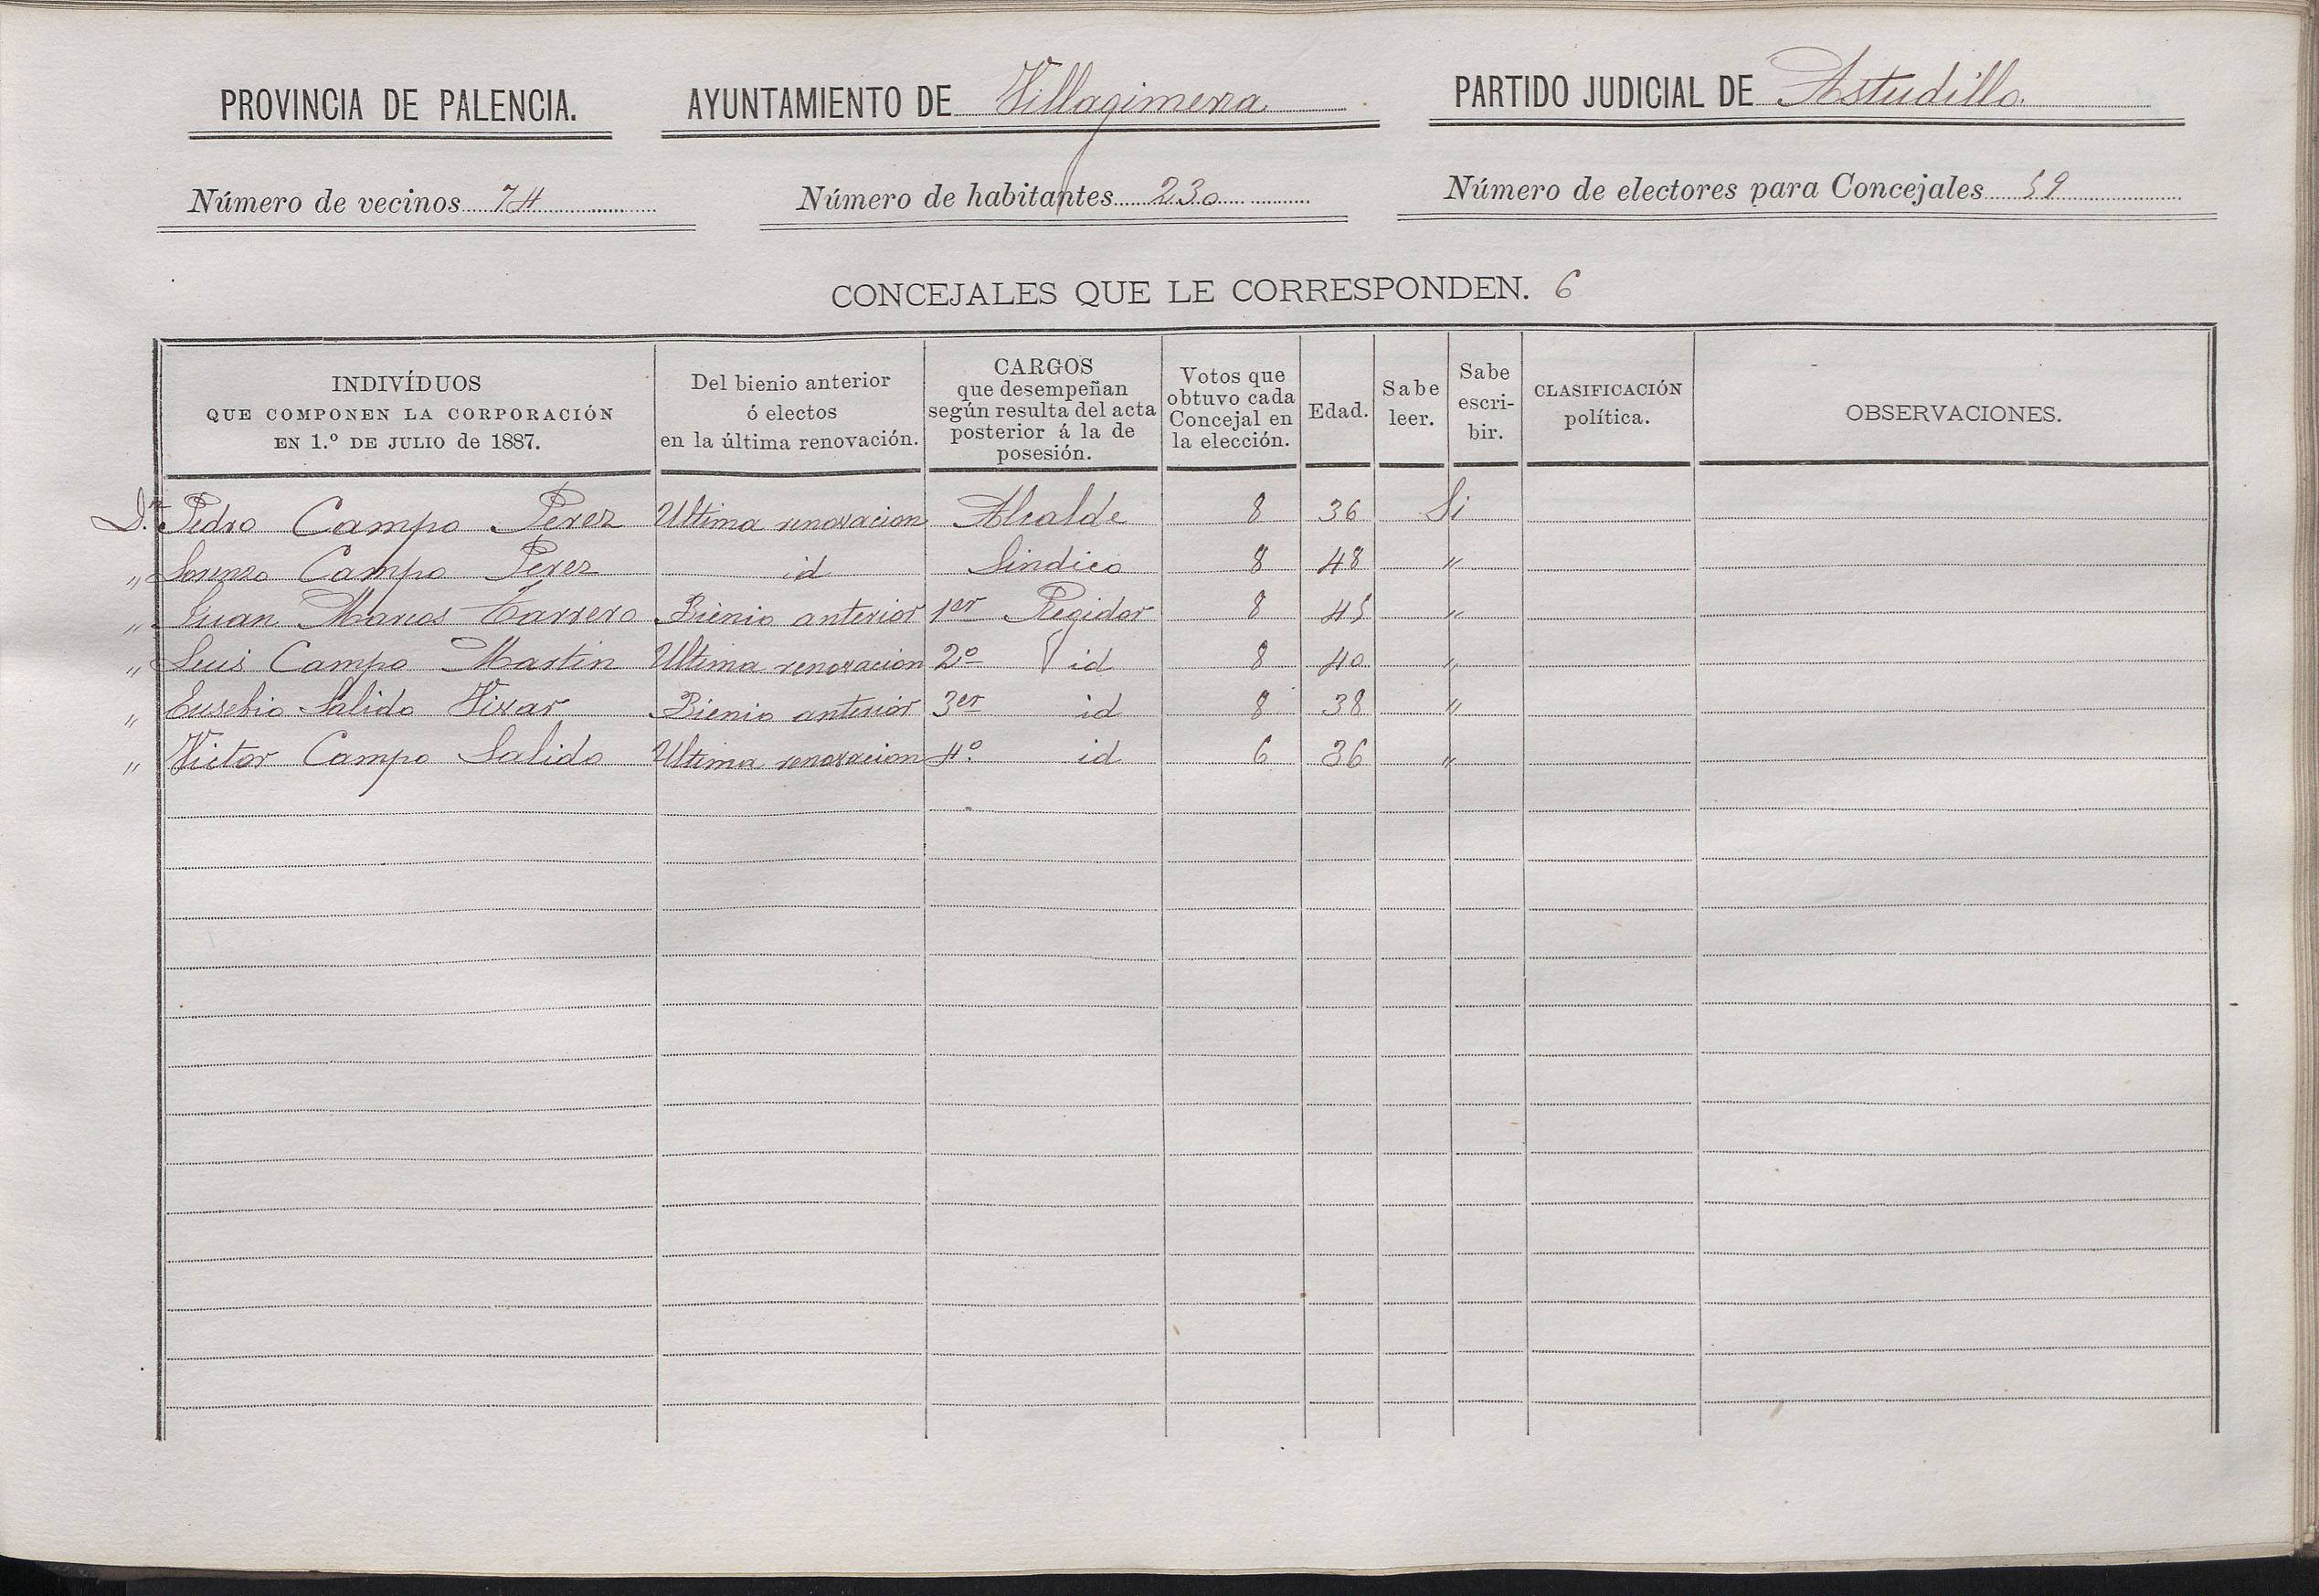 PROVINCIA DE PALENCIA. AYUNTAMIENTO DE Villagimena PARTIDO JUDICIAL DE Astudillo.
Número de vecinos 74 Número de habitantes 230 Número de electores para Concejales 59
CONCEJALES QUE LE CORRESPONDEN. 6
INDIVÍDUOS
QUE COMPONEN LA CORPORACIÓN
EN 1.º DE JULIO de 1887.
Del bienio anterior
ó electos
en la última renovación.
CARGOS
que desempeñan
según resulta del acta
posterior á la de
posesión.
Votos que
obtuvo cada
Concejal en
la elección.
Edad.
Sabe
leer.
Sabe
escri-
bir.
CLASIFICACIÓN
política.
OBSERVACIONES.
D.n Pedro Campo Perez Ultima renovacion Alcalde 8 36 Si
" Lorenzo Campo Perez id Sindico 8 48 "
" Juan Marcos Tarrero Bienio anterior 1er Regidor 8 45 "
" Luis Campo Martin Ultima renovacion 2º id 8 40 "
" Eusebio Salido Vivar Bienio anterior 3er id 8 38 "
" Victor Campo Salido Ultima renovacion 4º. id 6 36 "